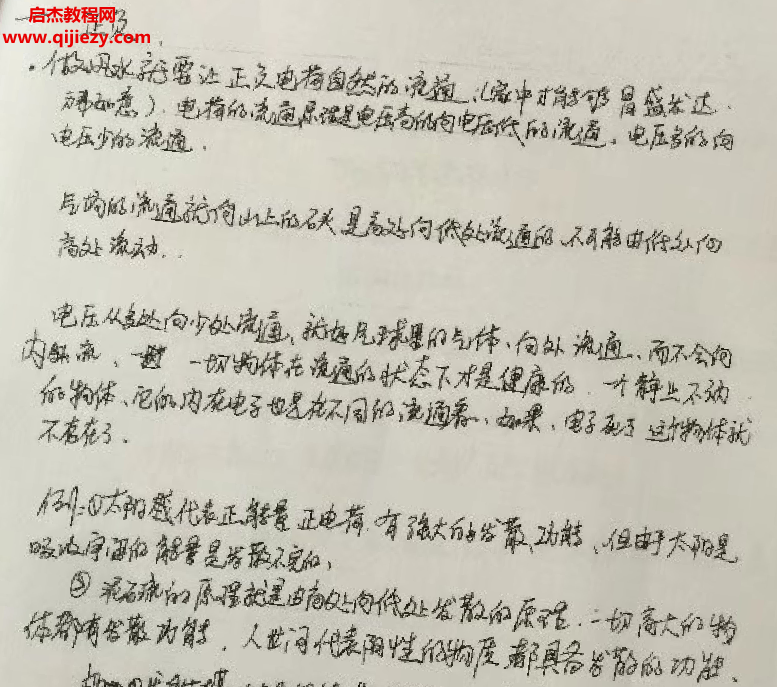 启杰教育网
www.qijiezy.com
•做风水就要让正负电荷自然的流通、(家中才能够昌盛发达.
万事如意)、电荷的流通原理是电压高的向电压低的流通。电压多的向
电压少的流通.
气场的流通就向山上的石头是高处向低处流通的、不可能由低处向
高处流动..
电压从多处向少处流通、就好气球里的气体、向外流通、而不会向
内流、一切物体在流通的状态下才是健康的.一个静止不动
的物体、它的内在电子也是在不同的流通着、如果、电子死了这个物体就
不存在了.
例:①太阳代表正能量正电荷.有强大的发散功能、但由于太阳是
吸收宇宙的能量是发散不完的、
②泥石流的原理就是由高处向低处发散的原理.一切高大的物
体都有发散功能.人世间代表阳性的物质都具备发散的功能、